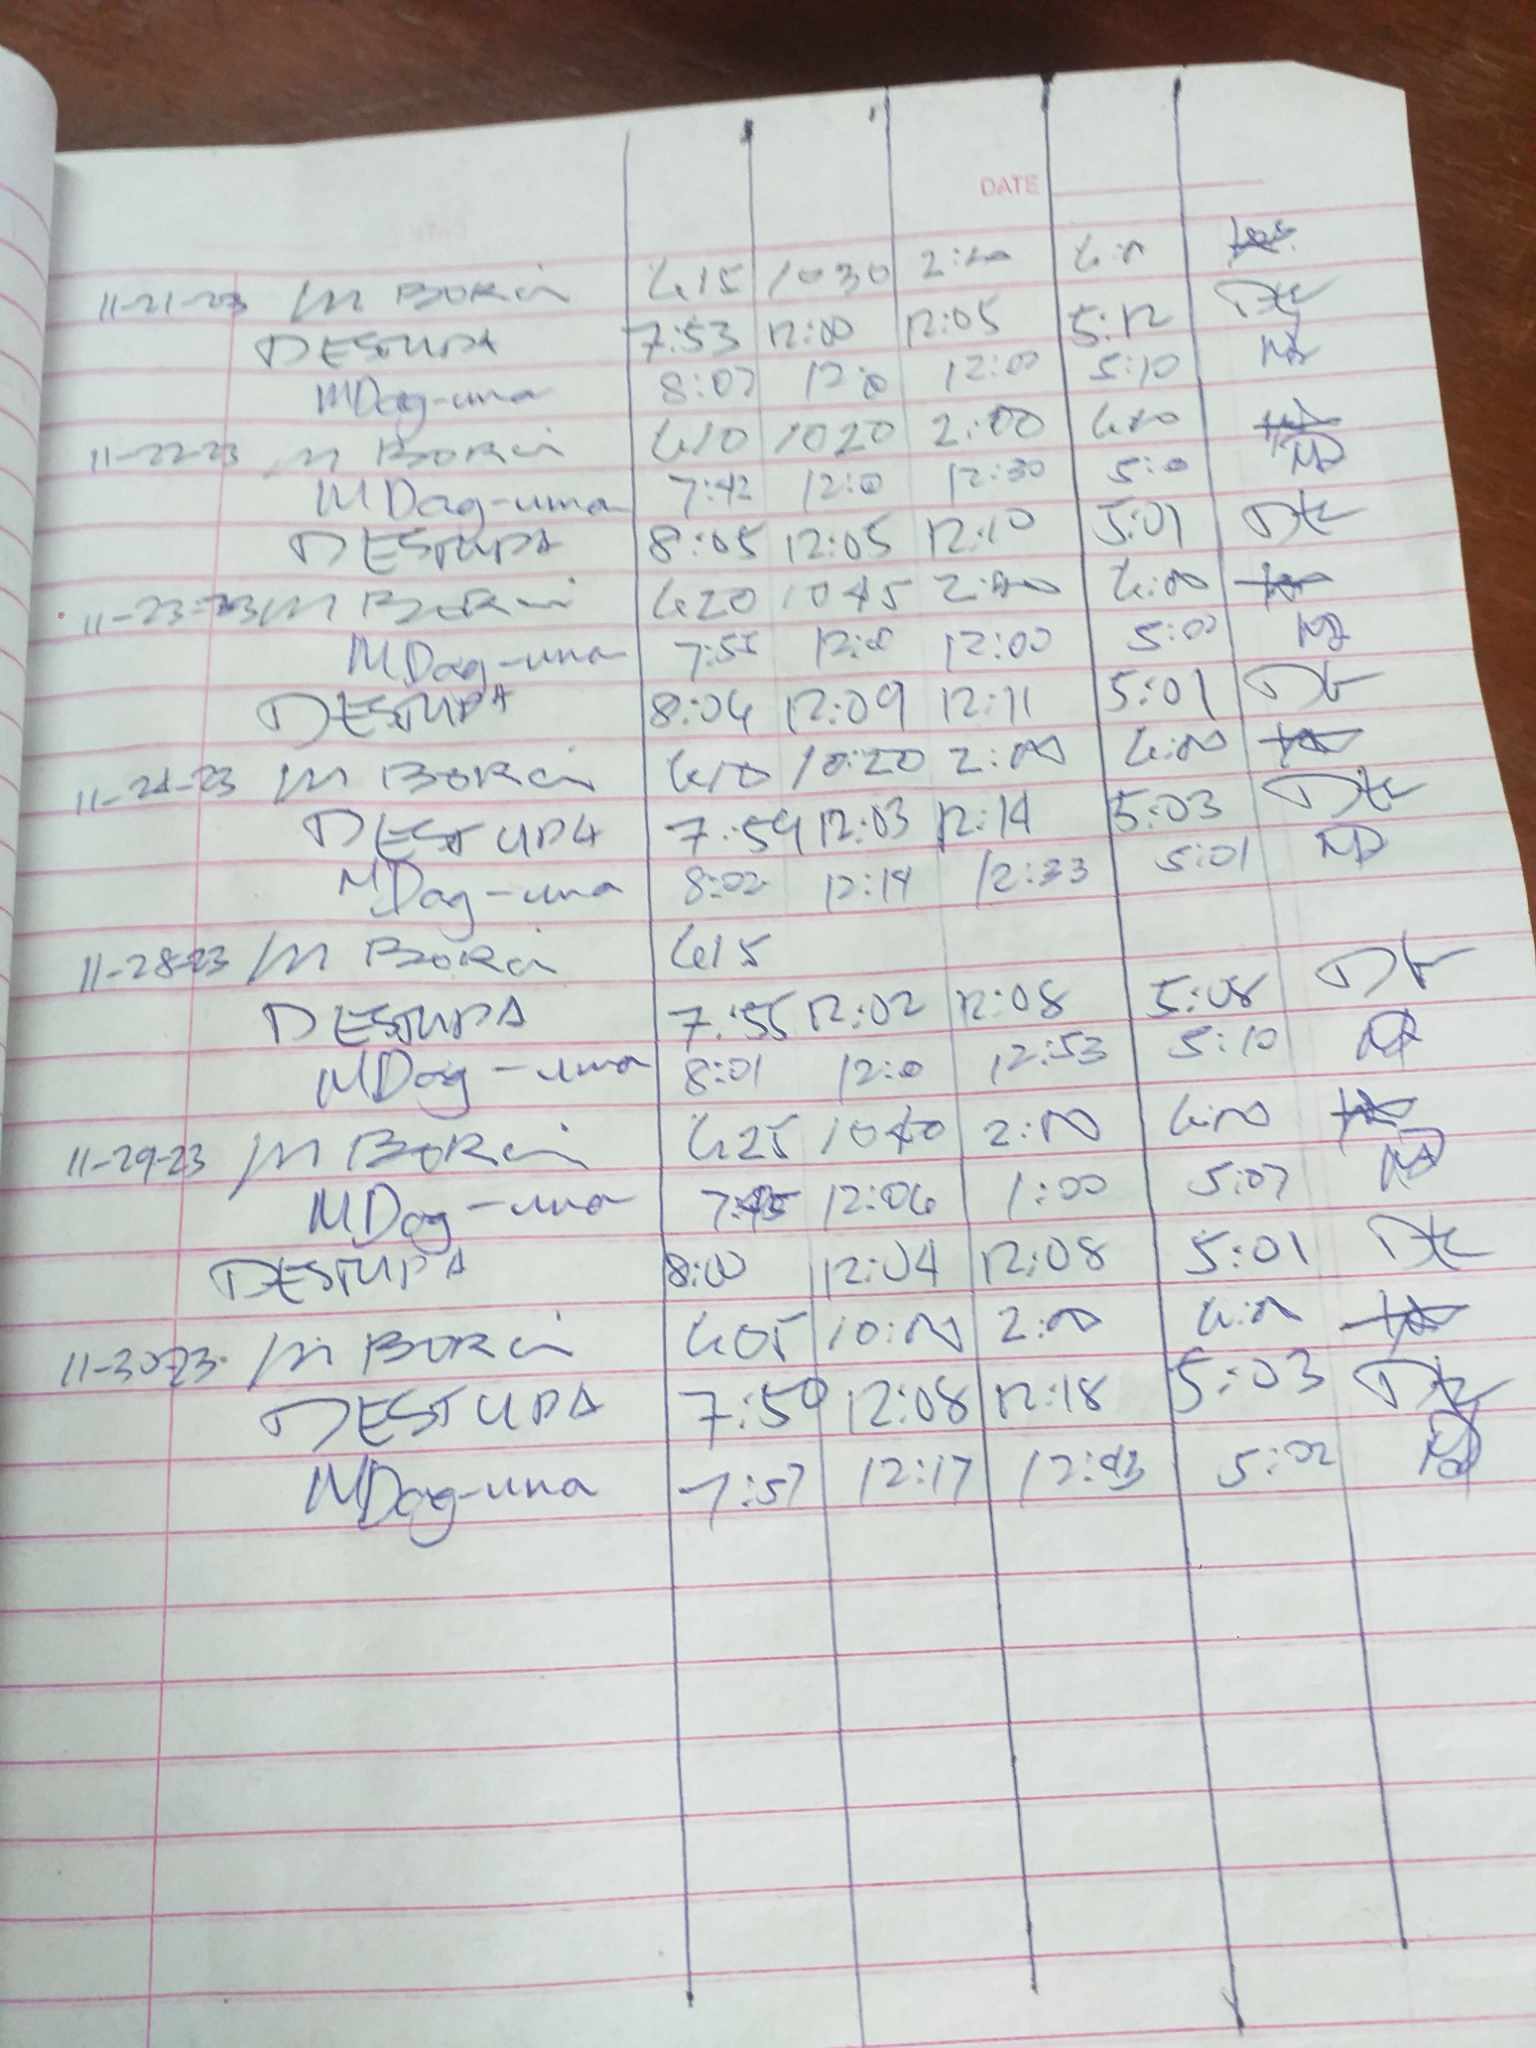 DATE
11-21-23 M BORCi 615 1030 2:00 6:00
DESTUPA 7:53 12:00 12:05 5:12
MDag-uma 8:07 12:0 12:00 5:10
11-22-23 M BORCi 610 1020 2:00 6:00
MDag-uma 7:42 12:0 12:30 5:0 MD
DESTUPA 8:05 12:05 12:10 5:01
11-23-23 M BORCi 620 1045 2:00 6:00
MDag-uma 12:0 12:00 5:00 MD
DESTUPA 8:04 12:09 12:11 5:01
11-24-23 M BORCi 610 10:20 2:00 6:00
DESTUPA 7:59 12:03 12:14 5:03
MDag-uma 8:02 12:14 12:33 5:01 MD
11-28-23 M BORCi 615
DESTUPA 7:55 12:02 12:08 5:08
MDag-uma 8:01 12:0 12:53 5:10 MD
11-29-23 M BORCi 625 1040 2:00 6:00
MDag-uma 7:45 12:06 1:00 5:07 MD
DESTUPA 8:00 12:04 12:08 5:01
11-30-23 M BORCi 605 10:00 2:00 6:00
DESTUPA 7:50 12:08 12:18 5:03
MDag-uma 7:57 12:17 12:43 5:02 MD